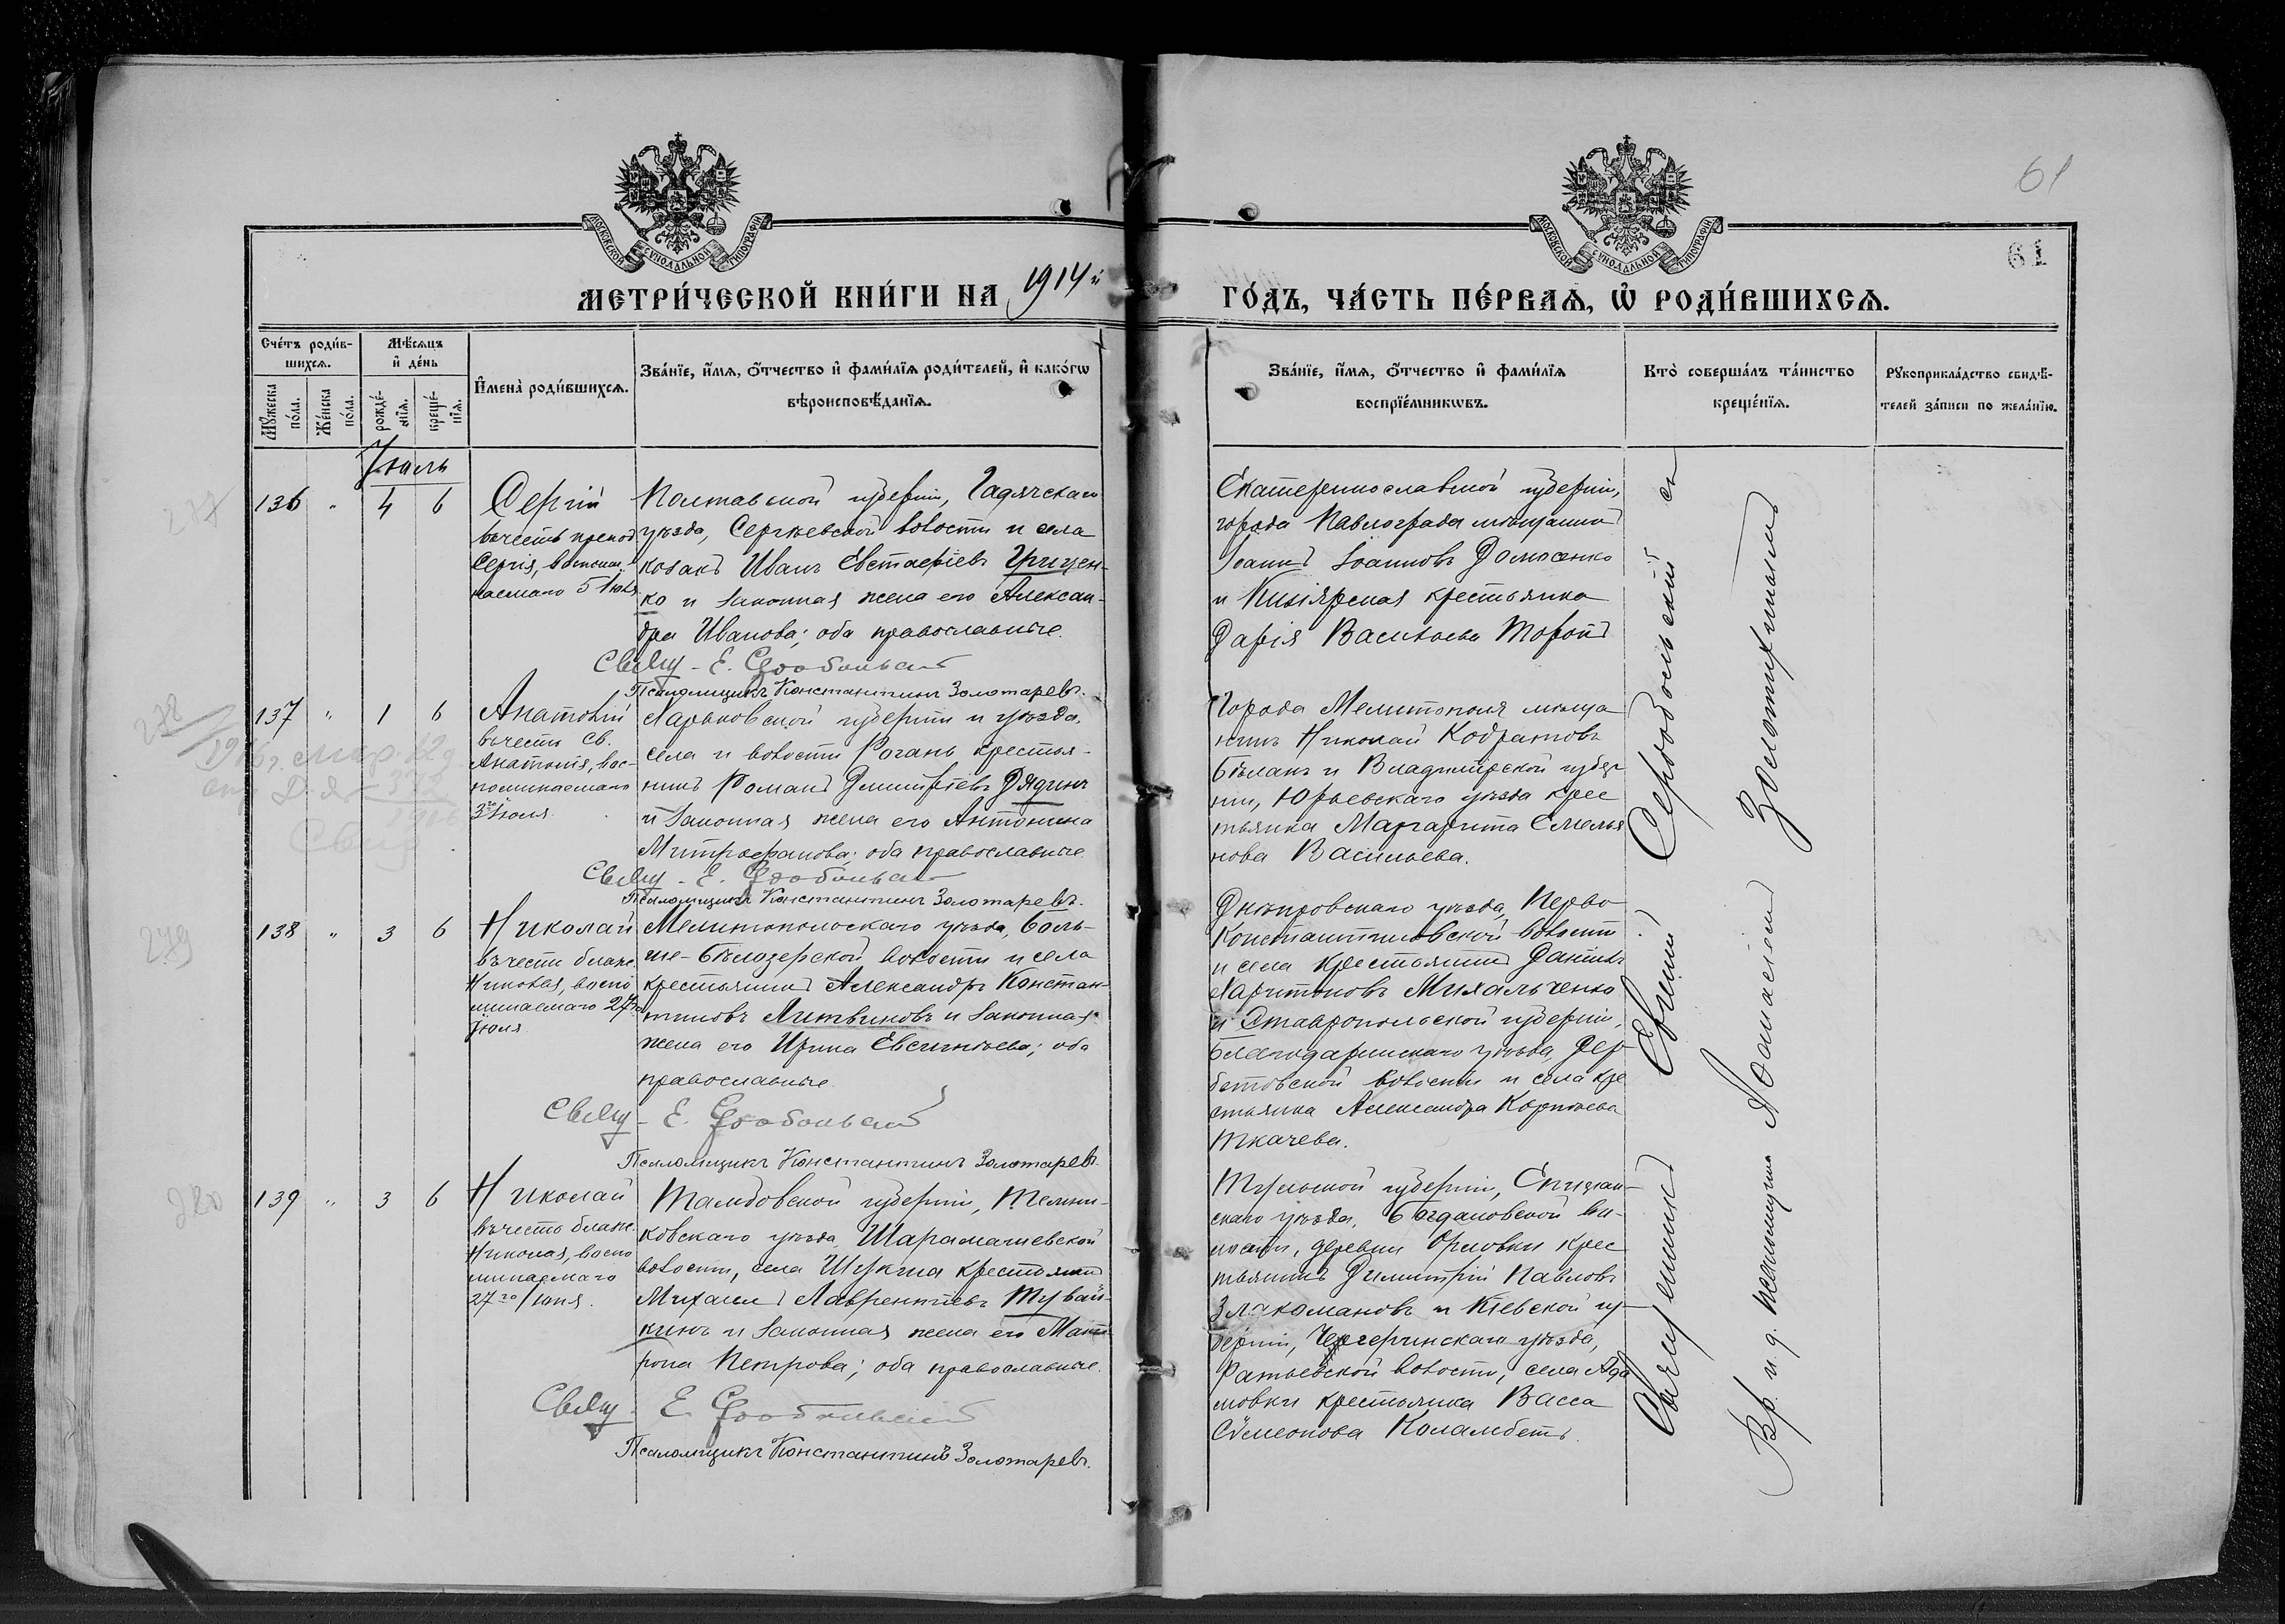 61
61
МОСКОВСКОЙ СѴНОДАЛЬНОЙ ТИПОГРАФІИ
МОСКОВСКОЙ СѴНОДАЛЬНОЙ ТИПОГРАФІИ
МЕТРИ́ЧЕСКОЙ КНИ́ГИ НА 1914й
ГО́ДЪ, ЧА́СТЬ ПЕ́РВАѦ, Ѡ҆ РОДИ́ВШИХСѦ.
Сче́тъ роди́в-
шихсѧ.
Мꙋ́жеска по́ла.
Же́нска по́ла.
Мѣ́сѧцъ
и҆ де́нь
рожде́-
нїѧ.
креще́-
нїѧ.
И҆мена̀ роди́вшихсѧ.
Зва́нїе, и҆́мѧ, ѻ҆́тчество и҆ фами́лїѧ роди́телей, и҆ како́гѡ
вѣроисповѣ́данїѧ.
Зва́нїе, и҆́мѧ, ѻ҆́тчество и҆ фами́лїѧ
воспрїе́мникѡвъ.
Кто̀ соверша́лъ та́инство
креще́нїѧ.
Рꙋкоприкла́дство свидѣ́-
телей за́писи по жела́нїю.
Іюль
277
136 " 4 6
Сергій
въ честь препод.
Сергія, воспоми-
наемаго 5 Іюля
Полтавской губерніи, Гадячскаго
уѣзда, Сергѣевской волости и села
козакъ Иванъ Евстафіевъ Грицен-
ко и законная жена его Алексан-
дра Иванова; оба православные.
Свящ. Е.
Псаломщикъ Константинъ Золотаревъ.
Екатеринославской губерніи,
города Павлограда мѣщанинъ
Іоаннъ Іоанновъ
и Кизіярская крестьянка
Дарія Васильева
278
137 " 1 6
Анатолій
въ честь св.
Анатолія, вос-
поминаемаго
3го Іюля.
Харьковской губерніи и уѣзда,
села и волости Рогань крестья-
нинъ Романъ Димитріевъ Дядинъ
и законная жена его Антонина
Митрофанова; оба православные.
Свящ. Е.
Псаломщикъ Константинъ Золотаревъ.
Города Мелитополя мѣща-
нинъ Николай Кодратовъ
Бѣланъ и Владимірской губер-
ніи, Юрьевскаго уѣзда крес-
тьянка Маргарита Емелья-
нова Васильева.
279
138 " 3 6
Николай
въ честь блаж.
Николая, воспо-
минаемаго 27го
Іюля
Мелитопольскаго уѣзда, Боль-
ше-Бѣлозерской волости и села
крестьянинъ Александръ Констан-
тиновъ Литвиновъ и законная
жена его Ирина Евсигніева; оба
православные.
Свящ. Е.
Псаломщикъ Константинъ Золотаревъ.
Днѣпровскаго уѣзда, Перво-
Константиновской волости
и села крестьянинъ Даніилъ
Харитоновъ Михальченко
и Ставропольской губерніи,
Благодаринскаго уѣзда, Дер-
бетовской волости и села кре-
стьянка Александра Корніева
Ткачева.
280
139 " 3 6
Николай
въ честь блаж.
Николая, воспо-
минаемаго
27го Іюня.
Тамбовской губерніи, Темни-
ковскаго уѣзда
волости, села крестьянинъ
Михаилъ Лаврентіевъ Тувай-
кинъ и законная жена его Мат-
рона Петрова; оба православные.
Свящ. Е.
Псаломщикъ Константинъ Золотаревъ.
губерніи,
скаго уѣзда, Богдановской во-
лости, деревни Орловки крес-
тьянинъ Димитрій Павловъ
Злакомановъ и Кіевской гу-
берніи, Чигиринскаго уѣзда,
Ратьевской волости, села Ада-
мовки крестьянка Васса
Сѵмеонова Коламбетъ.
Священникъ Евгеній Серобольскій съ
Вр. и. д. псаломщика Аѳанасіемъ